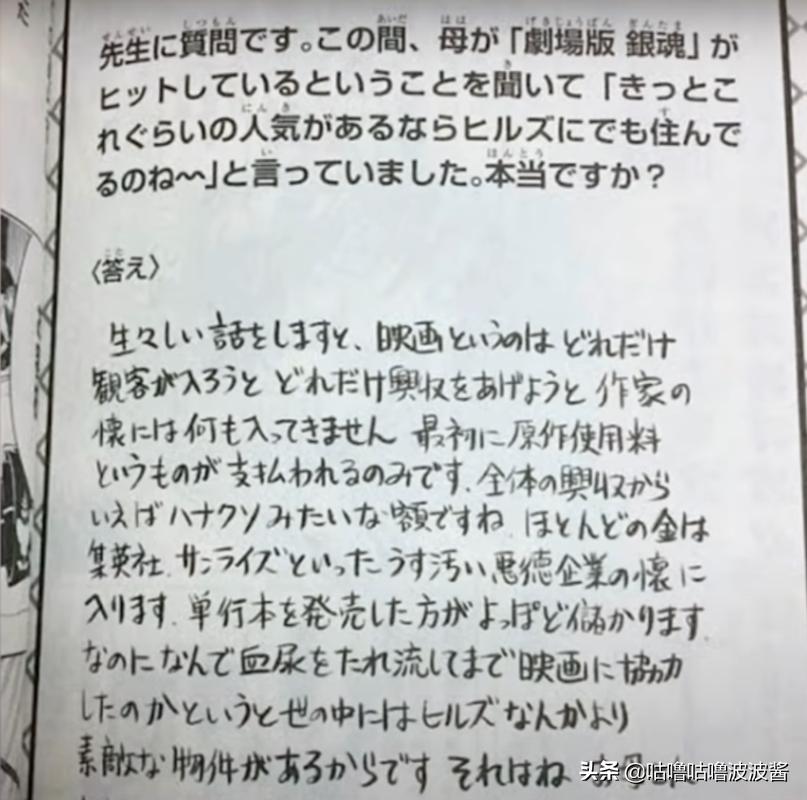 先生に質問です。この間、母が「劇場版 銀魂」が
ヒットしているということを聞いて「きっとこ
れぐらいの人気があるならヒルズにでも住んで
るのね〜」と言っていました。本当ですか？
〈答え〉
生々しい話をしますと、映画というのは どれだけ
観客が入ろうと どれだけ興収をあげようと 作家の
懐には何も入ってきません 最初に原作使用料
というものが支払われるのみです. 全体の興収から
いえばハナクソみたいな額ですね. ほとんどの金は
集英社. サンライズといったうす汚い悪徳企業の懐に
入ります. 単行本を発売した方がよっぽど儲かります.
なのになんで血尿をたれ流してまで映画に協力
したのかというと世の中にはヒルズなんかより
素敵な物件があるからです それはね
头条 @咕噜咕噜波波酱